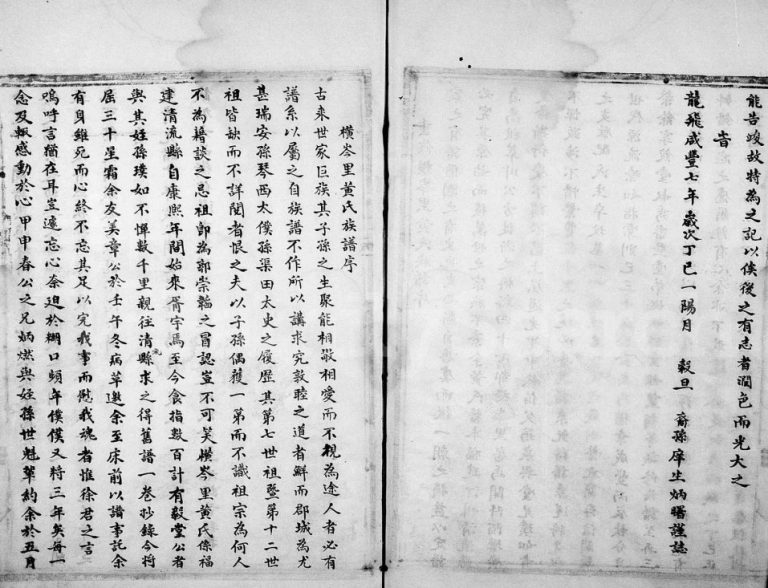 能告竣故特為之記以俟後之有志者潤色而光大之
旹
龍飛咸豐七年歲次丁巳一陽月 穀旦 裔孫庠生炳曙謹誌
橫岺里黃氏族譜序
古來世家巨族其子孫之生聚能相敬相愛而不視為途人者必有
譜系以屬之自族譜不作所以講求究敦睦之道者鮮而郡城為尤
甚瑞安孫琴西太僕孫渠田太史之履歷其第七世祖暨第十二世
祖皆缺而不詳閱者恨之夫以子孫偶獲一第而不識祖宗為何人
不為籍談之忌祖即為郭崇韜之冒認豈不可笑橫岺里黃氏係福
建清流縣自康熙年間始來胥宇焉至今食指數百計有毅堂公者
與其姪孫璞如不憚數千里親往清流縣求之得舊譜一卷抄錄今將
屈三十星霜余友美章公於壬午冬病革邀余至床前以譜事託余
有身雖死而心終不忘其足以完我事而慰我魂者惟徐君之言
嗚呼言猶在耳豈遽忘心奈迫於糊口頻年僕僕又將三年矣每一
念及輒感動於心甲申春公之兄炳燃與姪孫世魁輩約余於五月